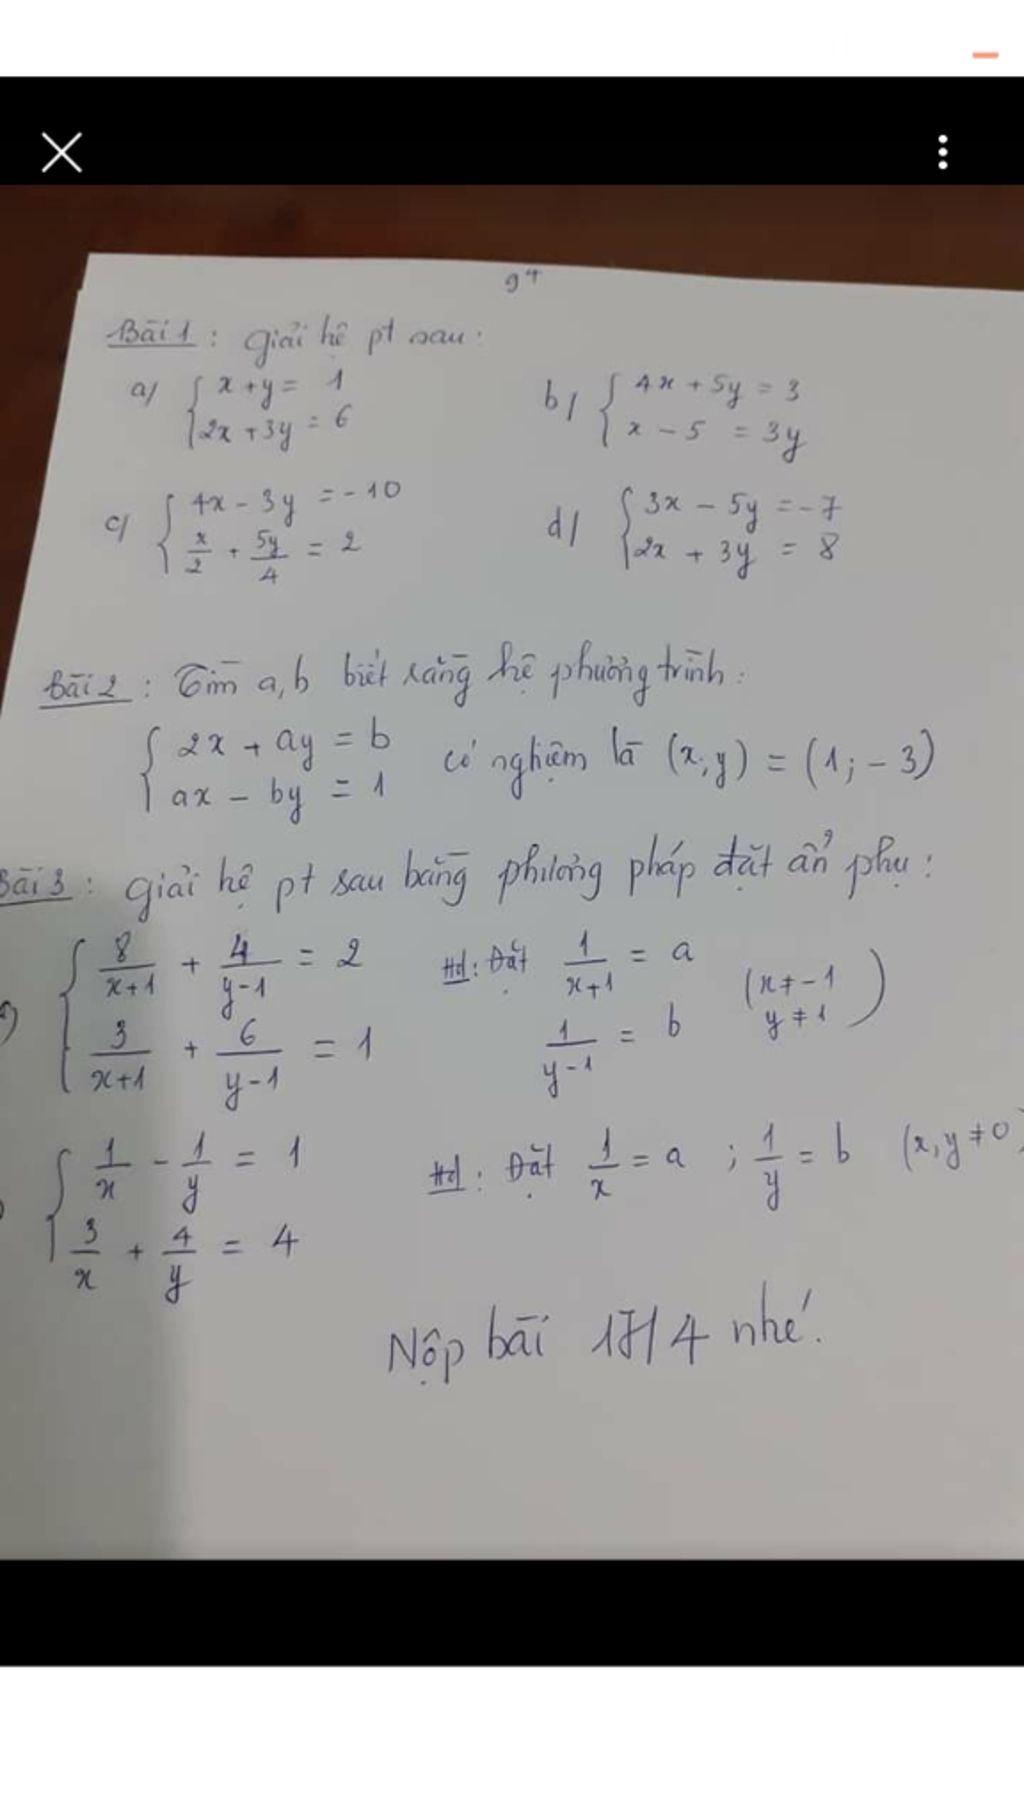 9⁴
Bài 1 : Giải hệ pt sau :
a/ { x + y = 1
2x + 3y = 6
b/ { 4x + 5y = 3
x - 5 = 3y
c/ { 4x - 3y = -10
x/2 + 5y/4 = 2
d/ { 3x - 5y = -7
2x + 3y = 8
Bài 2 : Tìm a, b biết rằng hệ phương trình :
{ 2x + ay = b
ax - by = 1
có nghiệm là (x; y) = (1; -3)
Bài 3 : Giải hệ pt sau bằng phương pháp đặt ẩn phụ :
{ 8/(x+1) + 4/(y-1) = 2
3/(x+1) + 6/(y-1) = 1
Hd : Đặt 1/(x+1) = a
1/(y-1) = b
(x ≠ -1
y ≠ 1)
{ 1/x - 1/y = 1
3/x + 4/y = 4
Hd : Đặt 1/x = a ; 1/y = b (x, y ≠ 0)
Nộp bài 17/4 nhé.